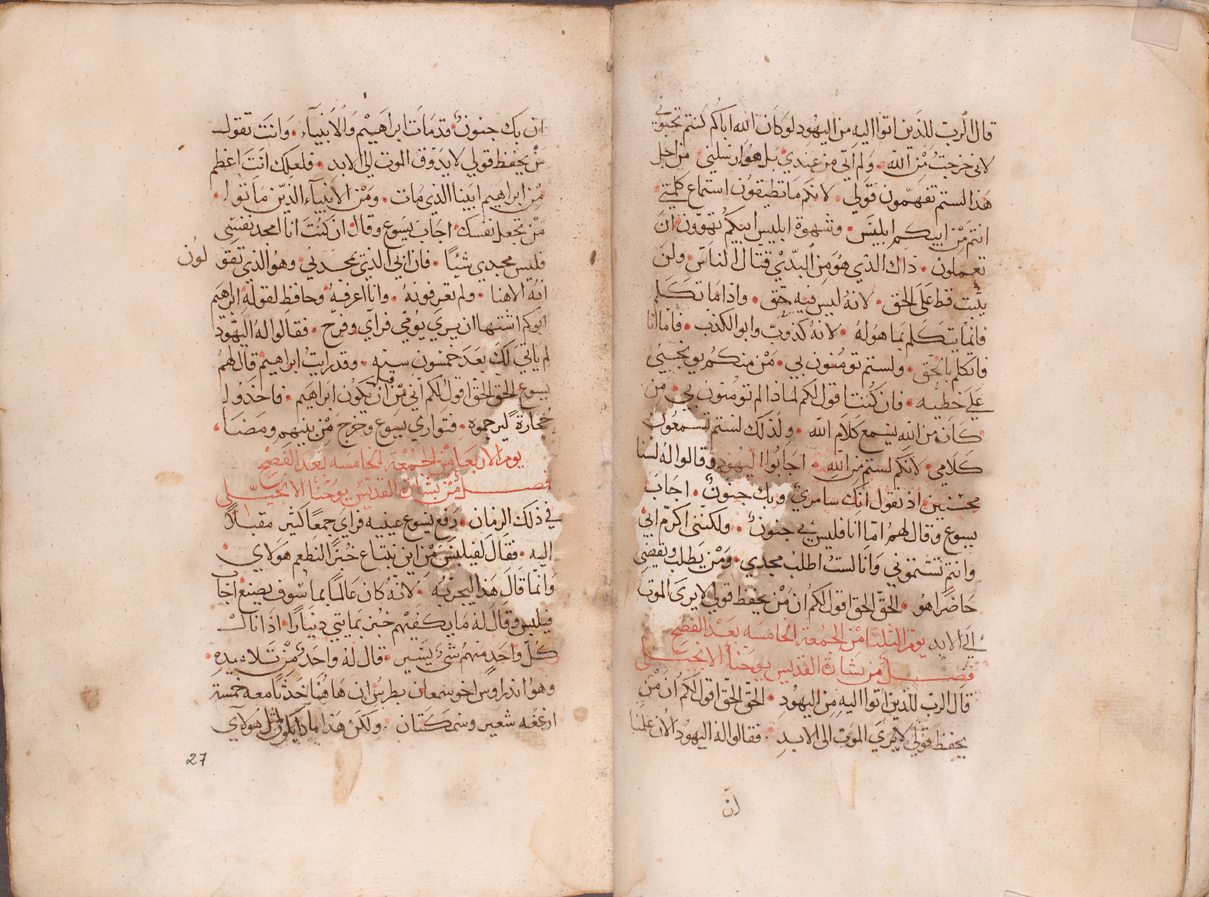 قال الرب للذين اتوا اليه من اليهود لو كان الله اباكم كنتم تحبوني
لاني خرجت من الله • ولم اتي من عندي بل هو ارسلني • من اجل
هذا لستم تفهمون قولي • لانكم ما تطيقون استماع كلمتي •
انتم من ابيكم ابليس • وشهوة ابليس ابيكم تهوون ان
تعملون • ذاك الذي هو من البدي قتال الناس • ولن
يثبت قط على الحق • لانه ليس فيه حق • واذا ما تكلم
فانما يتكلم بما هو له • لانه كذوب وابو الكذب • فاما انا
فاتكلم بالحق • ولستم تومنون بي • من منكم يوبخني
على خطيه • فان كنت اقول لكم لماذا لم تومنون بي • من
كان من الله يسمع كلام الله • ولذلك لستم تسمعون
كلامي • لانكم لستم من الله • اجابوا اليهود وقالوا له لسنا
محسنين اذ نقول انك سامري وبك جنون • اجاب
يسوع وقال لهم اما انا فليس بي جنون • ولكنني اكرم ابي
وانتم تشتموني وانا لست اطلب مجدي • ومن يطلب ويقضي
حاضرا هو • الحق الحق اقول لكم ان من يحفظ قولي لا يرى الموت
الى الابد يوم الثلثا من الجمعة الخامسه بعد الفصح
فصل من بشارة القديس يوحنا الانجيلي
قال الرب للذين اتوا اليه من اليهود • الحق الحق اقول لكم ان من
يحفظ قولي لا يرى الموت الى الابد • فقالوا له اليهود الان علمنا
ان
ان بك جنون • قد مات ابراهيم والانبياء • وانت تقول
من يحفظ قولي لا يذوق الموت الى الابد • فلعلك انت اعظم
من ابراهيم ابينا الذي مات • ومن الانبياء الذين ماتوا •
من تجعل نفسك • اجاب يسوع وقال ان كنت انا امجد نفسي
فليس مجدي شيئا • فان ابي الذي يمجدني • وهو الذي تقولون
انه الاهنا • ولم تعرفونه • وانا اعرفه • وحافظ لقوله ابرهيم
ابوكم اشتها ان يرى يومي فراي وفرح • فقالوا له اليهود
لم ياتي لك بعد خمسون سنه • وقد رايت ابراهيم • قال لهم
يسوع الحق الحق اقول لكم اني من قبل ان تكون ابراهيم • فاخذوا
حجارة ليرجموه • فتوارى يسوع وخرج من بينهم ومضا •
يوم الاربعا من الجمعة الخامسه بعد الفصح
فصل من بشارة القديس يوحنا الانجيلي
في ذلك الزمان • رفع يسوع عينيه فراى جمعا كثير مقبلا
اليه • فقال لفيلبس من اين نبتاع خبزا لنطعم هولاي •
وانما قال هذا ليجربه • لانه كان عالما بما سوف يصنع اجاب
فيلبس وقال له ما يكفيهم خبز بمايتي دينار • اذا نال
كل واحد منهم شي يسير • قال له واحد من تلاميده •
وهو اندراوس اخو سمعان بطرس ان هاهنا حدثا معه خمسة
ارغفه شعير وسمكتان • ولكن هذا ماذا يكون لمثل هولاي
27